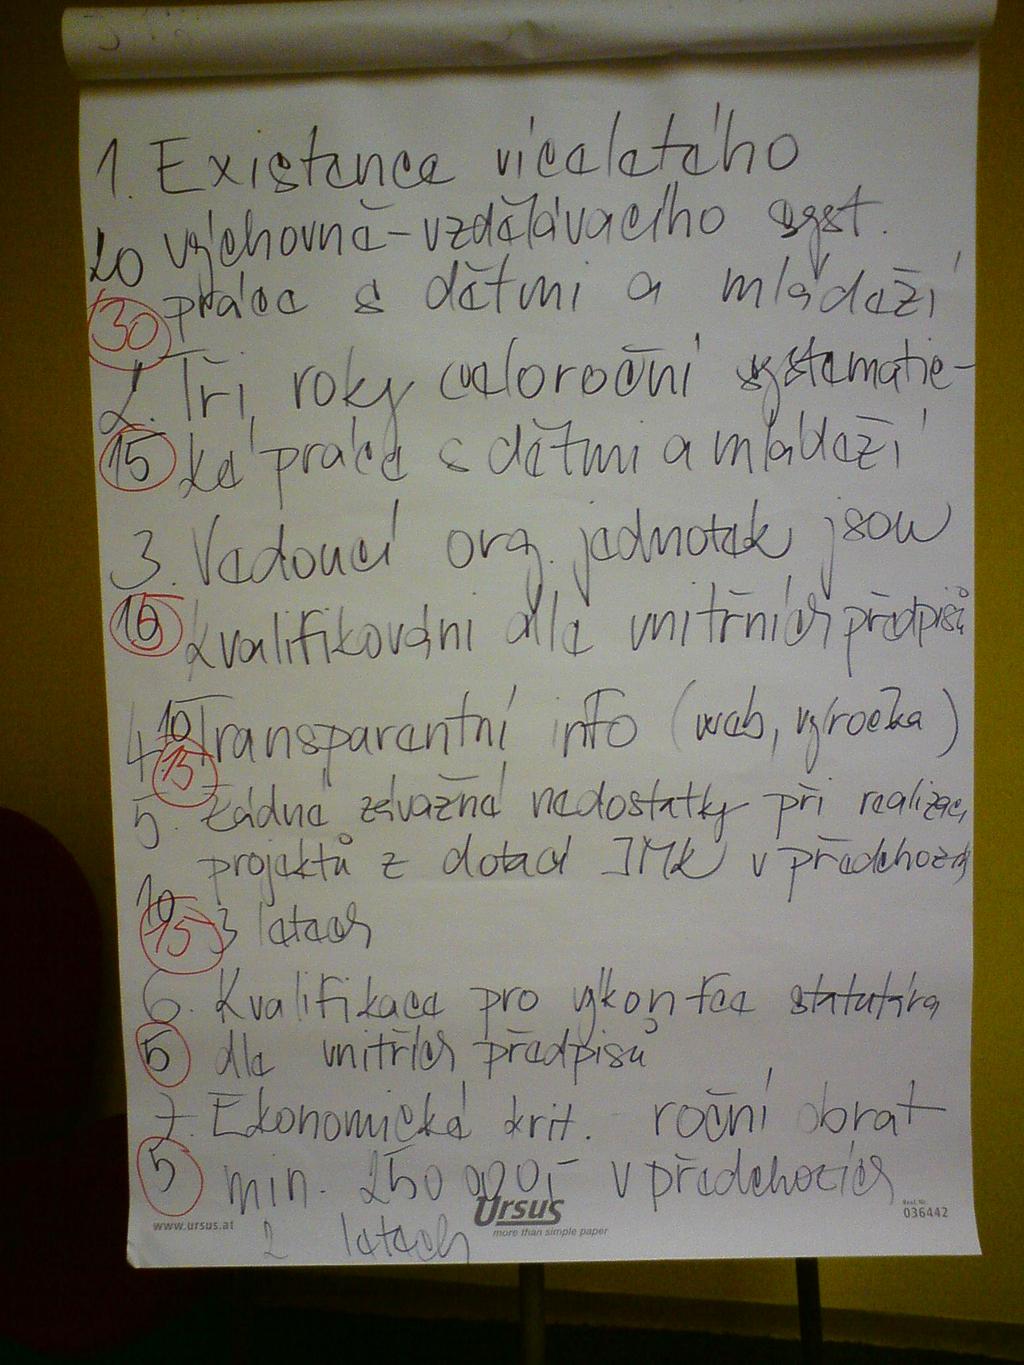 1. Existence víceletého
20 výchovně-vzdělávacího syst.
30 práce s dětmi a mládeží
2. Tři roky celoroční systematic-
15 ké práce s dětmi a mládeží
3. Vedoucí org. jednotek jsou
15 kvalifikováni dle vnitřních předpisů
4. 10 Transparentní info (web, výročka)
15
5. Žádné závažné nedostatky při realizaci
projektů z dotací JMK v předchozích
10
15 3 letech
6. Kvalifikace pro výkon fce statutára
5 dle vnitřích předpisů
7. Ekonomické krit. roční obrat
5 min. 250 000,- v předchozích
2 letech
Ursus
more than simple paper
www.ursus.at
036442